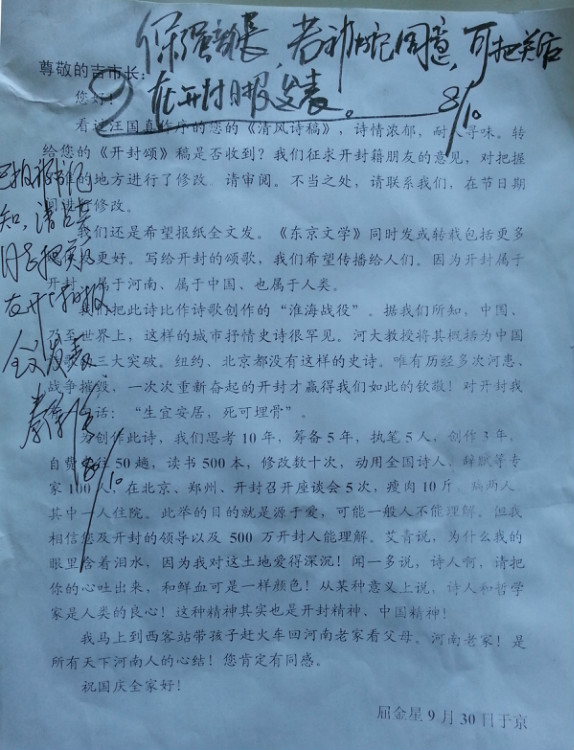 保强部长,若祁书记同意,可把关后
在开封日报发表。 8/10
尊敬的吉市长:
您好!
看过汪国真作序的您的《清风诗稿》,诗情浓郁,耐人寻味。转
给您的《开封颂》稿是否收到?我们征求开封籍朋友的意见,对把握
的地方进行了修改。请审阅。不当之处,请联系我们,在节日期
修改。
我们还是希望报纸全文发。《东京文学》同时发或转载包括更多
更好。写给开封的颂歌,我们希望传播给人们。因为开封属于
属于河南、属于中国、也属于人类。
把此诗比作诗歌创作的“淮海战役”。据我们所知,中国、
乃至世界上,这样的城市抒情史诗很罕见。河大教授将其概括为中国
三大突破。纽约、北京都没有这样的史诗。唯有历经多次河患、
战争摧毁,一次次重新奋起的开封才赢得我们如此的钦敬!对开封我
话:“生宜安居,死可埋骨”。
为创作此诗,我们思考 10 年,筹备 5 年,执笔 5 人,创作 3 年,
自费 50 趟,读书 500 本,修改数十次,动用全国诗人、辞赋等专
家 100 人,在北京、郑州、开封召开座谈会 5 次,瘦肉 10 斤,病两人,
其中一人住院。此举的目的就是源于爱,可能一般人不能理解。但我
相信您及开封的领导以及 500 万开封人能理解。艾青说,为什么我的
眼里含着泪水,因为我对这土地爱得深沉!闻一多说,诗人啊,请把
你的心吐出来,和鲜血可是一样颜色!从某种意义上说,诗人和哲学
家是人类的良心!这种精神其实也是开封精神、中国精神!
我马上到西客站带孩子赶火车回河南老家看父母。河南老家!是
所有天下河南人的心结!您肯定有同感。
祝国庆全家好!
屈金星 9 月 30 日于京
知,请
在开封日报
全文发表
8/10